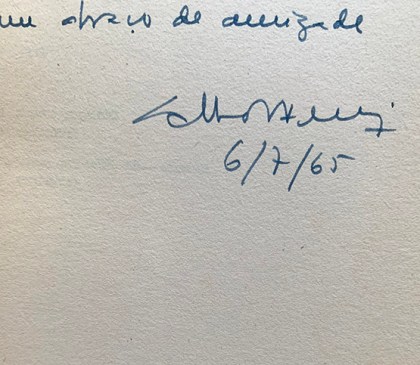 um abraço de amizade
6/7/65